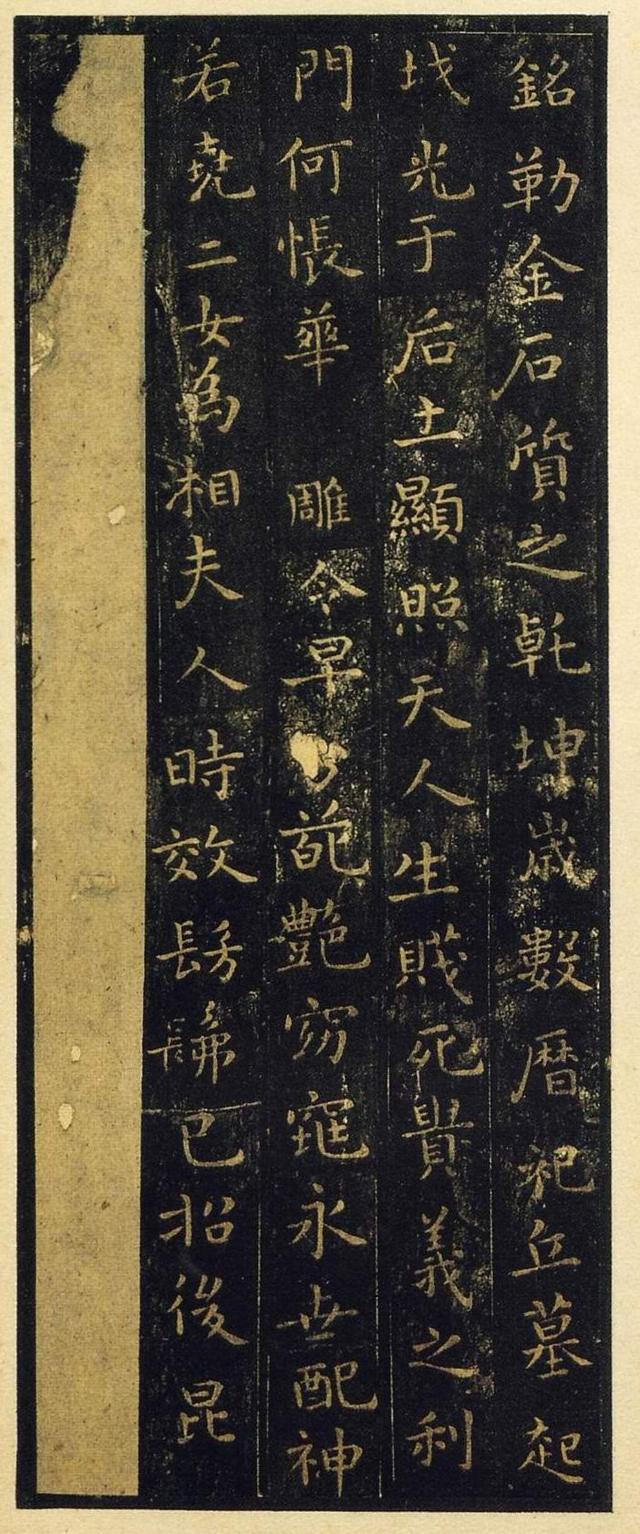 銘勒金石質之乹坤歳數曆祀丘墓起
坟光于后土顯照天人生賎死貴義之利
門何悵華 雕令早分葩豔窈窕永世配神
若堯二女為相夫人時效髣髴已招後昆